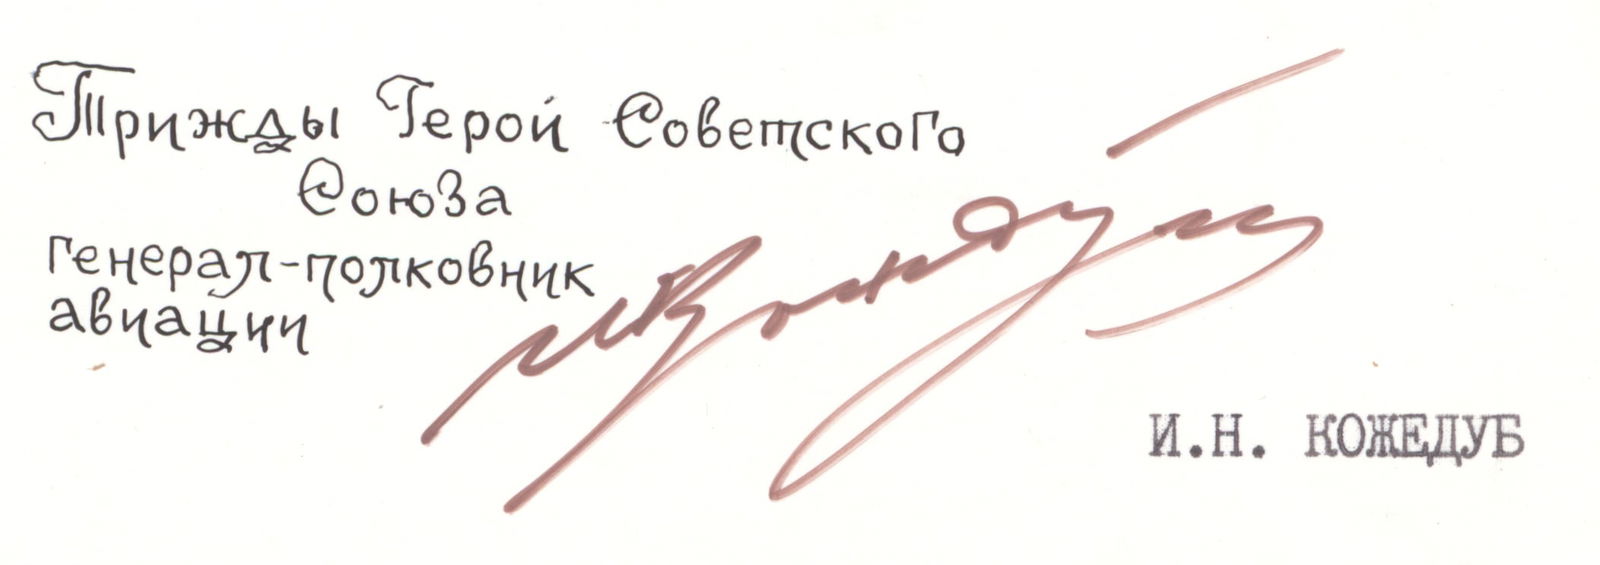 Трижды Герой Советского
Союза
генерал-полковник
авиации
И.Н. КОЖЕДУБ